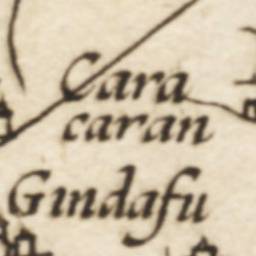 Cara
caran
Gindafu